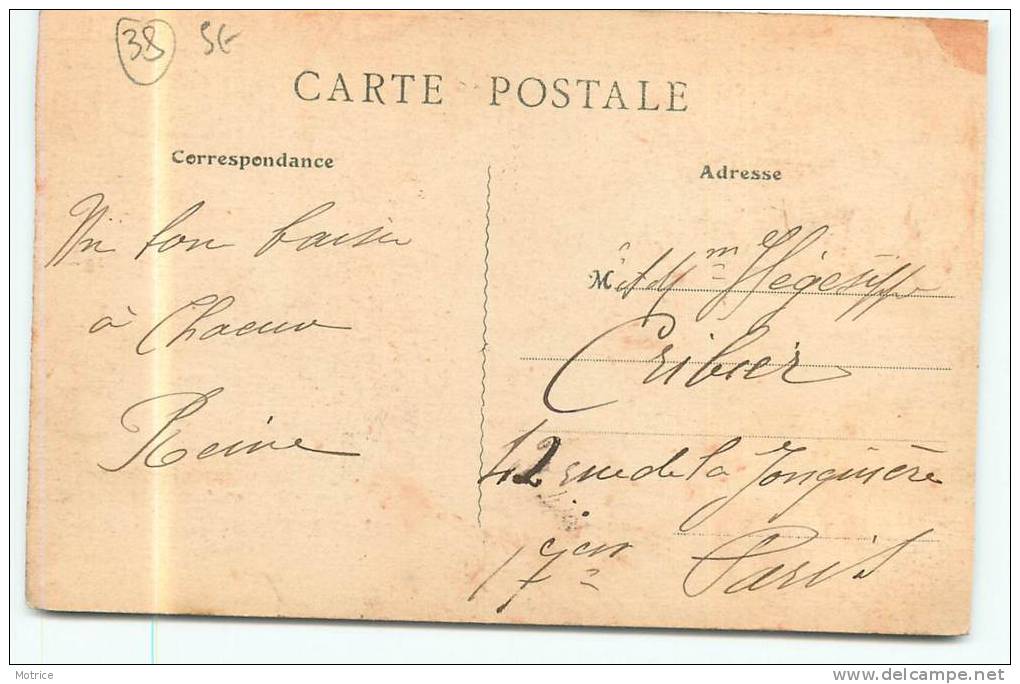 38 SG
CARTE POSTALE
Correspondance
Un bon baiser
à Chacun
Reine
Adresse
M et Mme Hégésippe
Cribier
42 rue de la Jonquière
17em
Paris
Motrice
www.delcampe.net